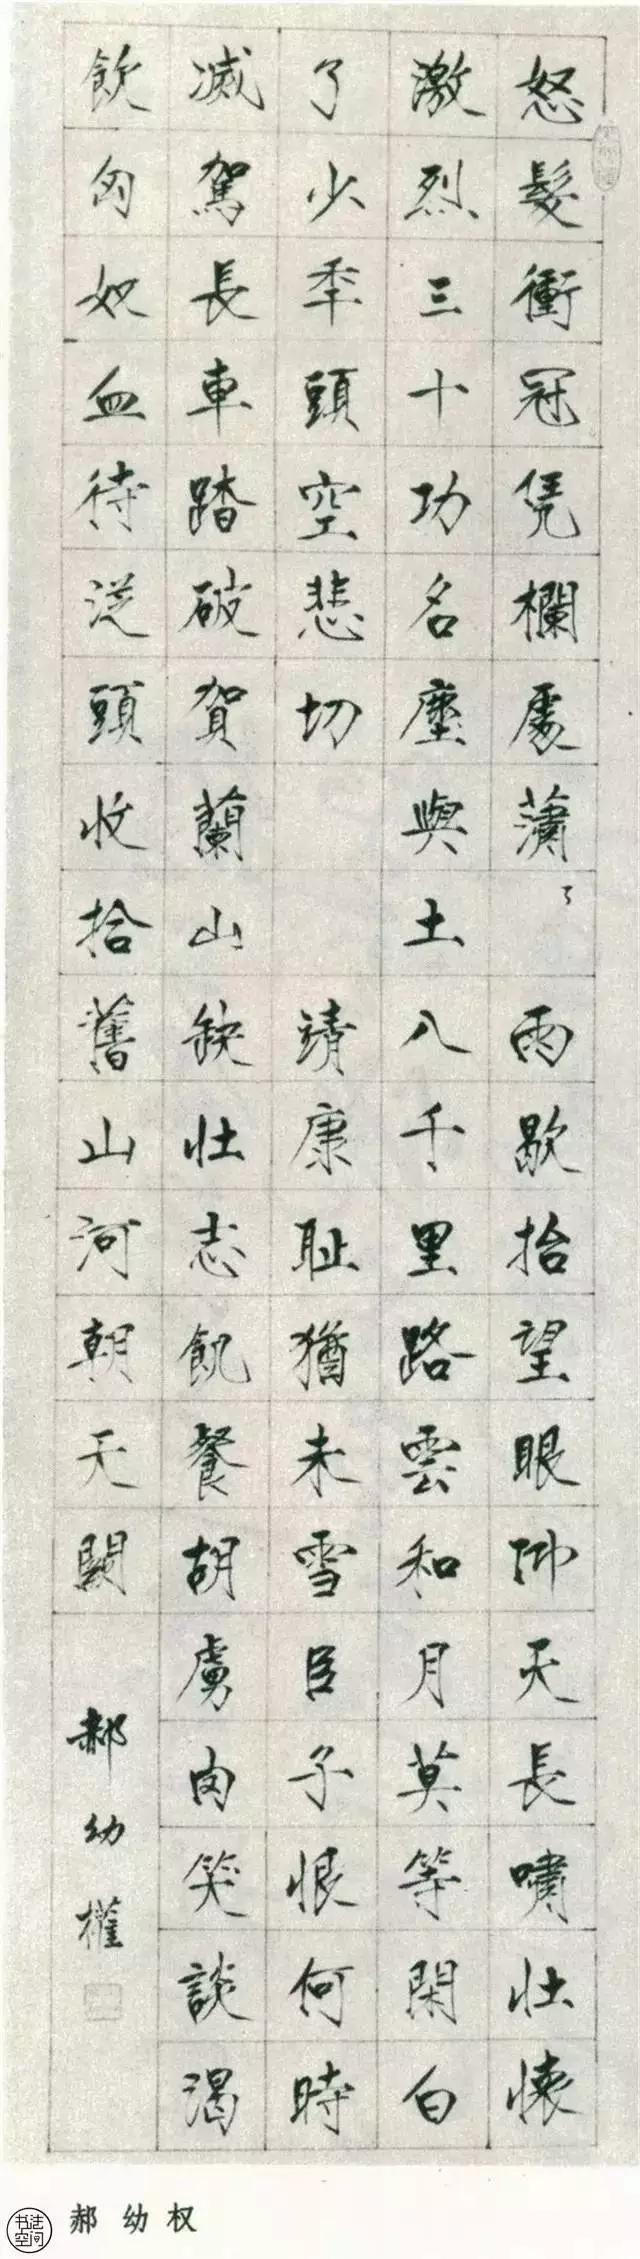 怒髮衝冠凭欄處瀟々雨歇抬望眼仰天長嘯壯懷
激烈三十功名塵與土八千里路雲和月莫等閑白
了少年頭空悲切 靖康耻猶未雪臣子恨何時
滅駕長車踏破賀蘭山缺壯志飢餐胡虜肉笑談渴
飲匈奴血待從頭收拾舊山河朝天闕
郝幼權
书法空间
郝幼权